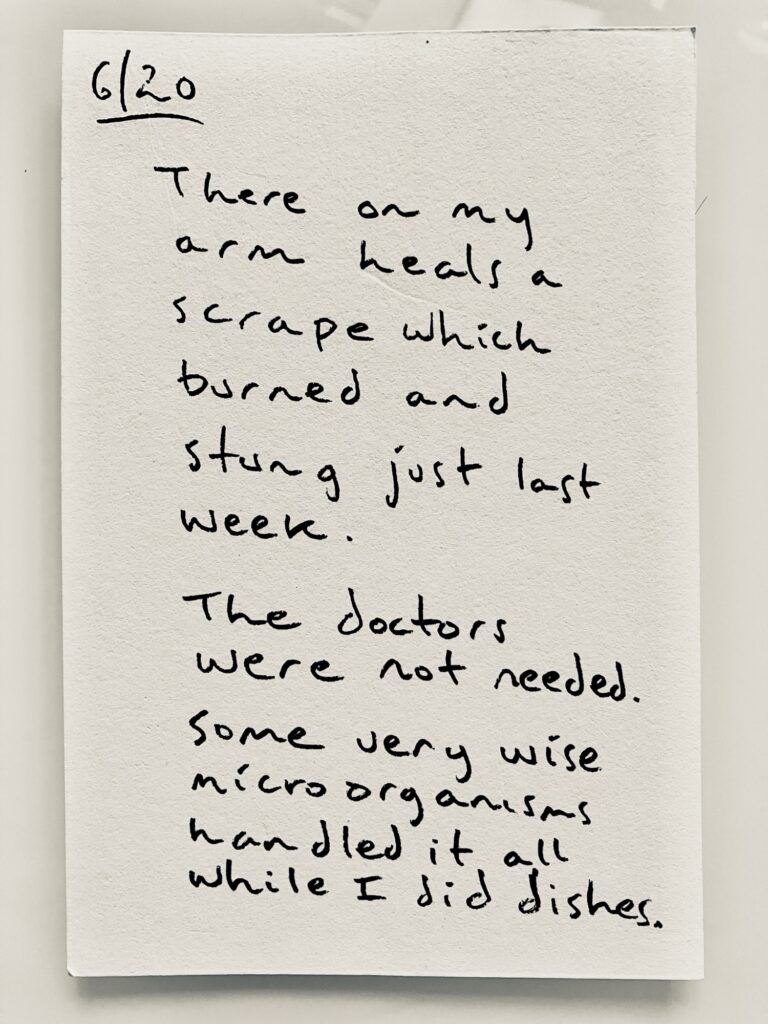 6/20
There on my
arm heals a
scrape which
burned and
stung just last
week.
The doctors
were not needed.
Some very wise
microorganisms
handled it all
while I did dishes.